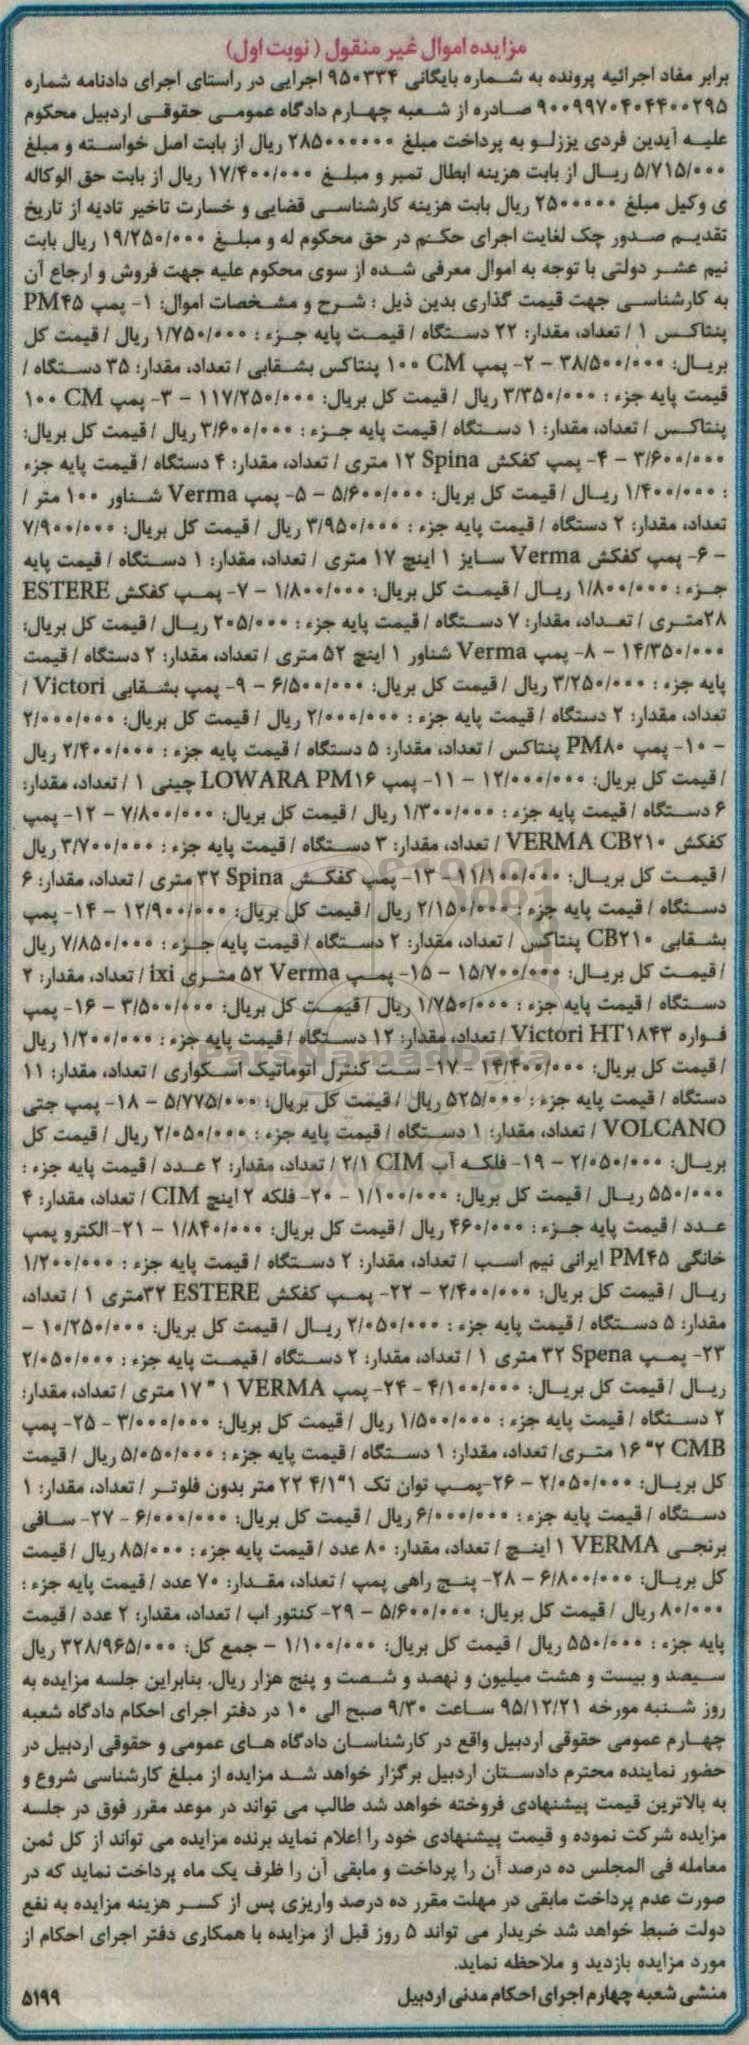 مزایده اموال غیر منقول (نوبت اول)
برابر مفاد اجرائیه پرونده به شماره بایگانی ۹۵۰۳۳۴ اجرایی در راستای اجرای دادنامه شماره
۹۰۰۹۹۷۰۴۰۴۴۰۰۲۹۵ صادره از شعبه چهارم دادگاه عمومی حقوقی اردبیل محکوم
علیه آیدین فردی یززلو به پرداخت مبلغ ۲۸۵۰۰۰۰۰۰ ریال از بابت اصل خواسته و مبلغ
۵/۷۱۵/۰۰۰ ریال از بابت هزینه ابطال تمبر و مبلغ ۱۷/۴۰۰/۰۰۰ ریال از بابت حق الوکاله
ی وکیل مبلغ ۲۵۰۰۰۰۰ ریال بابت هزینه کارشناسی قضایی و خسارت تاخیر تادیه از تاریخ
تقدیم صدور چک لغایت اجرای حکم در حق محکوم له و مبلغ ۱۹/۲۵۰/۰۰۰ ریال بابت
نیم عشر دولتی با توجه به اموال معرفی شده از سوی محکوم علیه جهت فروش و ارجاع آن
به کارشناسی جهت قیمت گذاری بدین ذیل : شرح و مشخصات اموال: ۱- پمپ PM۴۵
پنتاکس ۱ / تعداد، مقدار: ۲۲ دستگاه / قیمت پایه جزء : ۱/۷۵۰/۰۰۰ ریال / قیمت کل
بریال: ۳۸/۵۰۰/۰۰۰ – ۲- پمپ CM ۱۰۰ پنتاکس بشقابی / تعداد، مقدار: ۳۵ دستگاه /
قیمت پایه جزء : ۳/۳۵۰/۰۰۰ ریال / قیمت کل بریال: ۱۱۷/۲۵۰/۰۰۰ – ۳- پمپ CM ۱۰۰
پنتاکس / تعداد، مقدار: ۱ دستگاه / قیمت پایه جزء : ۳/۶۰۰/۰۰۰ ریال / قیمت کل بریال:
۳/۶۰۰/۰۰۰ – ۴- پمپ کفکش Spina ۱۲ متری / تعداد، مقدار: ۴ دستگاه / قیمت پایه جزء
: ۱/۴۰۰/۰۰۰ ریال / قیمت کل بریال: ۵/۶۰۰/۰۰۰ – ۵- پمپ Verma شناور ۱۰۰ متر /
تعداد، مقدار: ۲ دستگاه / قیمت پایه جزء : ۳/۹۵۰/۰۰۰ ریال / قیمت کل بریال: ۷/۹۰۰/۰۰۰
– ۶- پمپ کفکش Verma سایز ۱ اینچ ۱۷ متری / تعداد، مقدار: ۱ دستگاه / قیمت پایه
جزء : ۱/۸۰۰/۰۰۰ ریال / قیمت کل بریال: ۱/۸۰۰/۰۰۰ – ۷- پمپ کفکش ESTERE
۲۸متری / تعداد، مقدار: ۷ دستگاه / قیمت پایه جزء : ۲۰۵/۰۰۰ ریال / قیمت کل بریال:
۱۴/۳۵۰/۰۰۰ – ۸- پمپ Verma شناور ۱ اینچ ۵۲ متری / تعداد، مقدار: ۲ دستگاه / قیمت
پایه جزء : ۳/۲۵۰/۰۰۰ ریال / قیمت کل بریال: ۶/۵۰۰/۰۰۰ – ۹- پمپ بشقابی Victori /
تعداد، مقدار: ۲ دستگاه / قیمت پایه جزء : ۲/۰۰۰/۰۰۰ ریال / قیمت کل بریال: ۲/۰۰۰/۰۰۰
– ۱۰- پمپ PM۸۰ پنتاکس / تعداد، مقدار: ۵ دستگاه / قیمت پایه جزء : ۲/۴۰۰/۰۰۰ ریال
/ قیمت کل بریال: ۱۲/۰۰۰/۰۰۰ – ۱۱- پمپ LOWARA PM۱۶ چینی ۱ / تعداد، مقدار:
۶ دستگاه / قیمت پایه جزء : ۱/۳۰۰/۰۰۰ ریال / قیمت کل بریال: ۷/۸۰۰/۰۰۰ – ۱۲- پمپ
کفکش VERMA CB۲۱۰ / تعداد، مقدار: ۳ دستگاه / قیمت پایه جزء : ۳/۷۰۰/۰۰۰ ریال
/ قیمت کل بریال: ۱۱/۱۰۰/۰۰۰ – ۱۳- پمپ کفکش Spina ۳۲ متری / تعداد، مقدار: ۶
دستگاه / قیمت پایه جزء : ۲/۱۵۰/۰۰۰ ریال / قیمت کل بریال: ۱۲/۹۰۰/۰۰۰ – ۱۴- پمپ
بشقابی CB۲۱۰ پنتاکس / تعداد، مقدار: ۲ دستگاه / قیمت پایه جزء : ۷/۸۵۰/۰۰۰ ریال
/ قیمت کل بریال: ۱۵/۷۰۰/۰۰۰ – ۱۵- پمپ Verma ۵۲ متری ixi / تعداد، مقدار: ۲
دستگاه / قیمت پایه جزء : ۱/۷۵۰/۰۰۰ ریال / قیمت کل بریال: ۳/۵۰۰/۰۰۰ – ۱۶- پمپ
فواره Victori HT۱۸۴۳ / تعداد، مقدار: ۱۲ دستگاه / قیمت پایه جزء : ۱/۲۰۰/۰۰۰ ریال
/ قیمت کل بریال: ۱۴/۴۰۰/۰۰۰ – ۱۷- ست کنترل اتوماتیک اسکواری / تعداد، مقدار: ۱۱
دستگاه / قیمت پایه جزء : ۵۲۵/۰۰۰ ریال / قیمت کل بریال: ۵/۷۷۵/۰۰۰ – ۱۸- پمپ جتی
VOLCANO / تعداد، مقدار: ۱ دستگاه / قیمت پایه جزء : ۲/۰۵۰/۰۰۰ ریال / قیمت کل
بریال: ۲/۰۵۰/۰۰۰ – ۱۹- فلکه آب CIM ۲/۱ / تعداد، مقدار: ۲ عدد / قیمت پایه جزء :
۵۵۰/۰۰۰ ریال / قیمت کل بریال: ۱/۱۰۰/۰۰۰ – ۲۰- فلکه ۲ اینچ CIM / تعداد، مقدار: ۴
عدد / قیمت پایه جزء : ۴۶۰/۰۰۰ ریال / قیمت کل بریال: ۱/۸۴۰/۰۰۰ – ۲۱- الکترو پمپ
خانگی PM۴۵ ایرانی نیم اسب / تعداد، مقدار: ۲ دستگاه / قیمت پایه جزء : ۱/۲۰۰/۰۰۰
ریال / قیمت کل بریال: ۲/۴۰۰/۰۰۰ – ۲۲- پمپ کفکش ESTERE ۳۲متری ۱ / تعداد،
مقدار: ۵ دستگاه / قیمت پایه جزء : ۲/۰۵۰/۰۰۰ ریال / قیمت کل بریال: ۱۰/۲۵۰/۰۰۰ –
۲۳- پمپ Spena ۳۲ متری ۱ / تعداد، مقدار: ۲ دستگاه / قیمت پایه جزء : ۲/۰۵۰/۰۰۰
ریال / قیمت کل بریال: ۴/۱۰۰/۰۰۰ – ۲۴- پمپ VERMA ۱ " ۱۷ متری / تعداد، مقدار:
۲ دستگاه / قیمت پایه جزء : ۱/۵۰۰/۰۰۰ ریال / قیمت کل بریال: ۳/۰۰۰/۰۰۰ – ۲۵- پمپ
CMB ۲" ۱۶ متری/ تعداد، مقدار: ۱ دستگاه / قیمت پایه جزء : ۵/۰۵۰/۰۰۰ ریال / قیمت
کل بریال: ۲/۰۵۰/۰۰۰ – ۲۶-پمپ توان تک ۱"۴/۱ ۲۲ متر بدون فلوتر / تعداد، مقدار: ۱
دستگاه / قیمت پایه جزء : ۶/۰۰۰/۰۰۰ ریال / قیمت کل بریال: ۶/۰۰۰/۰۰۰ – ۲۷- سافی
برنجی VERMA ۱ اینچ / تعداد، مقدار: ۸۰ عدد / قیمت پایه جزء : ۸۵/۰۰۰ ریال / قیمت
کل بریال: ۶/۸۰۰/۰۰۰ – ۲۸- پنج راهی پمپ / تعداد، مقدار: ۷۰ عدد / قیمت پایه جزء :
۸۰/۰۰۰ ریال / قیمت کل بریال: ۵/۶۰۰/۰۰۰ – ۲۹- کنتور اب / تعداد، مقدار: ۲ عدد / قیمت
پایه جزء : ۵۵۰/۰۰۰ ریال / قیمت کل بریال: ۱/۱۰۰/۰۰۰ – جمع کل: ۳۲۸/۹۶۵/۰۰۰ ریال
سیصد و بیست و هشت میلیون و نهصد و شصت و پنج هزار ریال. بنابراین جلسه مزایده به
روز شنبه مورخه ۹۵/۱۲/۲۱ ساعت ۹/۳۰ صبح الی ۱۰ در دفتر اجرای احکام دادگاه شعبه
چهارم عمومی حقوقی اردبیل واقع در کارشناسان دادگاه های عمومی و حقوقی اردبیل در
حضور نماینده محترم دادستان اردبیل برگزار خواهد شد مزایده از مبلغ کارشناسی شروع و
به بالاترین قیمت پیشنهادی فروخته خواهد شد طالب می تواند در موعد مقرر فوق در جلسه
مزایده شرکت نموده و قیمت پیشنهادی خود را اعلام نماید برنده مزایده می تواند از کل ثمن
معامله فی المجلس ده درصد آن را پرداخت و مابقی آن را ظرف یک ماه پرداخت نماید که در
صورت عدم پرداخت مابقی در مهلت مقرر ده درصد واریزی پس از کسر هزینه مزایده به نفع
دولت ضبط خواهد شد خریدار می تواند ۵ روز قبل از مزایده با همکاری دفتر اجرای احکام از
مورد مزایده بازدید و ملاحظه نماید.
منشی شعبه چهارم اجرای احکام مدنی اردبیل
۵۱۹۹
ParsNamadData